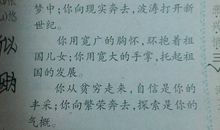 梦中;你向现实奔去,波涛打开新
世纪。
你用宽广的胸怀,环抱着祖
国儿女;你用宽大的手掌,托起祖
国的发展。
你从贫穷走来,自信是你的
丰采;你向繁荣奔去,探索是你的
气概。
似